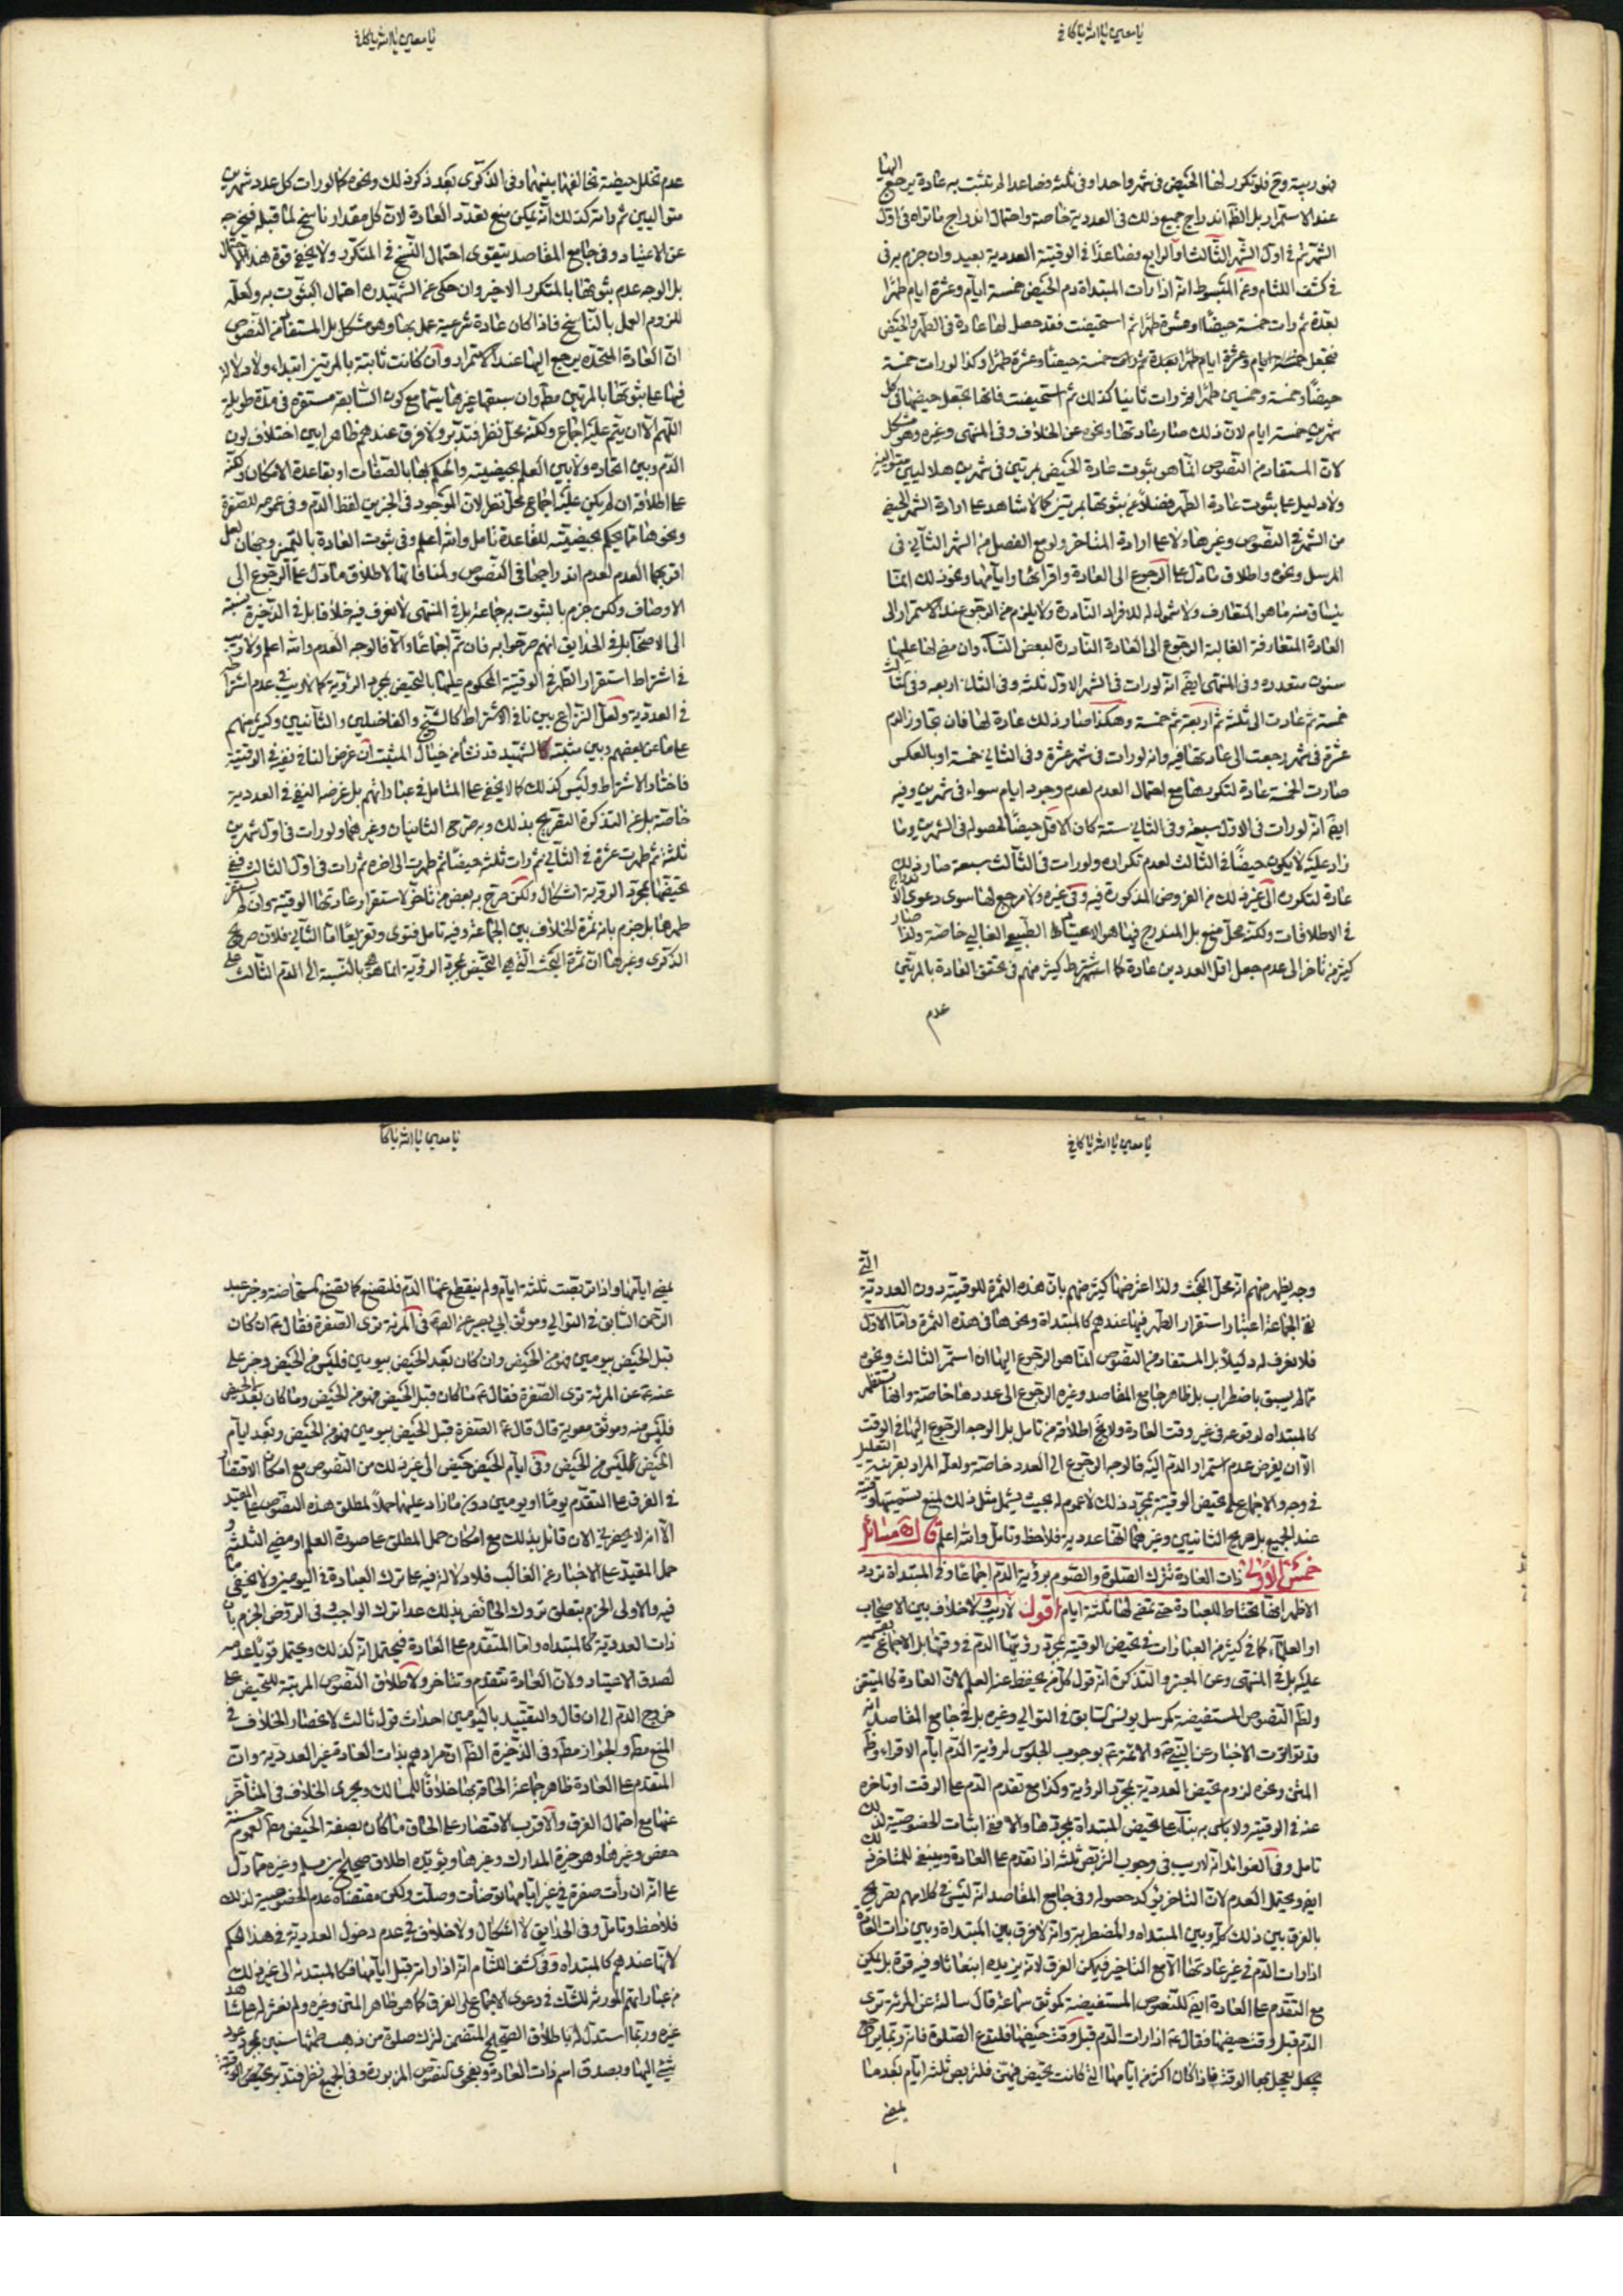 يا معين يا الله يا كافي
فنوربية وح فلو تكرر لها الحيض في شهر واحد او في ثلثة فصاعدا لم تثبت به عادة يرجع اليها
عند الاستمرار بل الظ اندراج جميع ذلك في العددية خاصة واحتمال اندراج ما تراه في اول
الشهر ثم في اول الشهر الثالث او الرابع فصاعدا في الوقتية العددية بعيد وان جزم به في
في كشف اللثام وعن المبسوط انه اذا رات المبتداة دم الحيض خمسة ايام وعشرة ايام طهرا
بعده ثم رات خمسة حيضا او عشرة طهرا ثم استحيضت فقد حصل لها عادة في الطهر والحيض
فتجعل خمسة ايام وعشرة ايام طهرا بعده ثم رات خمسة حيضا وعشرة طهرا وكذا لو رات خمسة
حيضا وخمسة وخمسين طهرا ثم رات ثانيا كذلك ثم استحيضت فانها تجعل حيضها في كل
شهرين خمسة ايام لان ذلك صار عادتها ونحوه عن الخلاف وفي المنتهى وغيره وهو مشكل
لان المستفاد من النصوص انما هو ثبوت عادة الحيض بمرتين في شهرين هلاليين متواليين
ولا دليل على ثبوت عادة الطهر فضلا عن ثبوتها بمرتين كما لا شاهد على ارادة الشهر الحيضي
من الشهر في النصوص وغيرها ولا على ارادة المتاخر ولو مع الفصل من الشهر الثاني في
المرسل ونحوه واطلاق ما دل على الرجوع الى العادة واقرائها وايامها ونحو ذلك انما
ينساق منه ما هو المتعارف ولا شمول له للافراد النادرة ولا يلزم من الرجوع عند الاستمرار الى
العادة المتعارفة الغالبة الرجوع الى العادة النادرة لبعض النساء وان مضى لها عليها
سنون متعددة وفي المنتهى ايضا انه لو رات في الشهر الاول ثلثة وفي الثاني اربعة وفي الثالث
خمسة ثم عادت الى ثلثة ثم اربعة ثم خمسة وهكذا صار ذلك عادة لها فان تجاوز الدم
عشرة في شهر رجعت الى عادتها فيه وانه لو رات في شهر عشرة وفي الثاني خمسة او بالعكس
صارت الخمسة عادة لتكررها مع احتمال العدم لعدم وجود ايام سواء في شهرين وفيه
ايضا انه لو رات في الاول سبعة وفي الثاني ستة كان الاقل حيضا لحصوله في الشهرين وما
زاد عليه لا يكون حيضا في الثالث لعدم تكرره ولو رات في الثالث سبعة صار ذلك
عادة لتكرره الى غير ذلك من الفروض المذكورة فيه وفي غيره ولا مرجع لها سوى دعوى الاندراج
في الاطلاقات ولكنه محل منع بل المندرج فيها هو الاعتياد الطبيعي الغالبي خاصة ولذا صار
كثير من تاخر الى عدم جعل اقل العددين عادة كما اشترط كثير منهم في تحقق العادة بالمرتين
عدم
يا معين يا الله يا كافي
عدم تخلل حيضة تخالفها بينهما وفي الذكرى بعد ذكره ذلك ونحوه كما لو رات كل عدد شهرين
متواليين ثم وانتركذلك انه يمكن منع تعدد العادة لان كل مقدار ناسخ لما قبله فيخرجه
عن الاعتياد وفي جامع المقاصد يتقوى احتمال النسخ في المتكرر ولا يخفى قوة هذا الاحتمال
بل الوجه عدم ثبوتها بالمتكرر الاخير وان حكى عن الشهيد احتمال الثبوت به ولعله
للزوم العمل بالناسخ فاذا كان عادة شرعية عمل بها وهو مشكل بل المستفاد من النصوص
ان العادة المتحدة يرجع اليها عند الاستمرار وان كانت ثابتة بالمرتين ابتداء ولا دلالة
فيها على ثبوتها بالمرتين مط وان سبقها غيرها سيما مع كون السابقة مستقرة في مدة طويلة
اللهم الا ان يتم عليه اجماع ولكنه محل نظر فتدبر ولا فرق عندهم ظاهرا بين اختلاف لون
الدم وبين اتحاده ولا بين العلم بحيضيته والحكم بها بالصفات او بقاعدة الامكان ولكنه
على اطلاقه ان لم يكن عليه اجماع محل نظر لان الموجود في الخبرين لفظ الدم وفي عمومه للصفرة
ونحوها مما يحكم بحيضيته للقاعدة تامل والله اعلم وفي ثبوت العادة بالتميز وجهان لعل
اقربهما العدم لعدم اندراجها في النصوص ولمنافاتها لاطلاق ما دل على الرجوع الى
الاوصاف ولكن جزم بالثبوت به جماعة بل في المنتهى لا نعرف فيه خلافا بل في الذخيرة نسبته
الى الاصحاب بل في الحدايق انهم صرحوا به فان تم اجماعا والا فالوجه العدم والله اعلم ولا ريب
في اشتراط استقرار الطهر في الوقتية المحكوم عليها بالتحيض بمجرد الرؤية كما لا ريب في عدم اشتراطه
في العددية ولعل النزاع بين نافي الاشتراط كالشيخ والفاضلين والثانيين وكثير منهم
على ما عن بعضهم وبين مثبته كالشهيد قد نشأ من خيال المثبت ان غرض النافي نفيه في الوقتية
فاختار الاشتراط وليس كذلك كما لا يخفى على المتامل في عباراتهم بل غرضه النفي في العددية
خاصة بل عن التذكرة التصريح بذلك وبه صرح الثانيان وغيرهما ولو رات في اول شهرين
ثلثة ثم طهرت عشرة في الثاني ثم رات ثلثة حيضا ثم طهرت الى اخره ثم رات في اول الثالث ففي
تحيضها بمجرد الرؤية اشكال ولكن صرح به بعض من تاخر لاستقرار عادتها الوقتية وان لم يستقر
طهرها بل جزم بانه ثمرة الخلاف بين الجماعة وفيه تامل فتوى وتفريعا اما الثاني فلان صريح
الذكرى وغيرها ان ثمرة البحث التي هي التحيض بمجرد الرؤية انما هي بالنسبة الى الدم الثالث على
يا معين يا الله يا كافي
وجه يظهر منهم انه محل البحث ولذا اعترضها كثير منهم بان هذه الثمرة للوقتية دون العددية التي
نفى الجماعة اعتبار استقرار الطهر فيها عندهم كالمبتداة ونحوها في هذه الثمرة واما الاول
فلا نعرف له دليلا بل المستفاد من النصوص انما هو الرجوع اليها ان استمر الثالث ونحوه
مما لم يسبق باضطراب بل ظاهر جامع المقاصد وغيره الرجوع الى عددها خاصة وانها تستظهر
كالمبتداه لوقوعه في غير وقت العادة ولا يخ اطلاقه من تامل بل الوجه الرجوع اليها في الوقت
الا ان يفرض عدم استمرار الدم اليه فالوجه الرجوع الى العدد خاصة ولعله المراد بقرينة التعليل
في وجه والاجماع على تحيض الوقتية بمجرد ذلك لا عموم له بحيث يشمل مثل ذلك لمنع تسميتها وقتية
عند الجميع بل صريح الثانيين وغيرهما انها عددية فلاحظ وتامل والله اعلم قال ره مسائل
خمس الاولى ذات العادة تترك الصلوة والصوم برؤية الدم اجماعا وفي المبتداة تردد
الاظهر انها تحتاط للعبادة حتى تمضي لها ثلثة ايام اقول لا ريب ولا خلاف بين الاصحاب
او العلماء كما في كثير من العبارات في تحيض الوقتية بمجرد رؤيتها الدم في وقتها بل الاجماع بقسميه
عليه بل في المنتهى وعن المعتبر والتذكرة انه قول كل من يحفظ عنه العلم لان العادة كالمتيقن
ولظ النصوص المستفيضة كمرسل يونس السابق في التوالي وغيره بل في جامع المقاصد انه
قد تواترت الاخبار عن النبي ص والائمة ع بوجوب الجلوس لرؤية الدم ايام الاقراء وظ
المتن وغيره لزوم تحيض العددية بمجرد الرؤية وكذا مع تقدم الدم على الوقت او تاخره
عنه في الوقتية ولا باس به بناء على تحيض المبتداة بمجردها والا ففي اثبات الخصوصية لذلك
تامل وفي الفوائد انه لا ريب في وجوب التربص ثلثة اذا تقدم على العادة وينبغي للمتاخر ذلك
ايضا ويحتمل العدم لان التاخر يؤكد حصوله وفي جامع المقاصد انه ليس في كلامهم تصريح
بالفرق بين ذلك كله وبين المبتداه والمضطربة وانه لا فرق بين المبتداة وبين ذات العادة
اذا رات الدم في غير عادتها الا مع التاخير فيمكن الفرق لانه يزيده انبعاثا وفيه قوة بل يمكن
مع التقدم على العادة ايضا للنصوص المستفيضة كموثق سماعة قال سالته عن المرئة ترى
الدم قبل وقت حيضها فقال ع اذا رات الدم قبل وقت حيضها فلتدع الصلوة فانه ربما
يعجل بها الوقت فاذا كان اكثر من ايامها التي كانت تحيض فيهن فلتربص ثلثة ايام بعد ما
يمضي
يا معين يا الله يا كافي
يمضي ايامها واذا تربصت ثلثة ايام ولم ينقطع عنها الدم فلتصنع كما تصنع المستحاضة وخبر عبد
الرحمن السابق في التوالي وموثق ابي بصير عن الص ع في المرئة ترى الصفرة فقال ع ان كان
قبل الحيض بيومين فهو من الحيض وان كان بعد الحيض بيومين فليس من الحيض وخبر علي
عنه ع عن المرئة ترى الصفرة فقال ع ما كان قبل الحيض فهو من الحيض وما كان بعد الحيض
فليس منه وموثق معوية قال قال ع الصفرة قبل الحيض بيومين فهو من الحيض وبعد ايام
الحيض ليس من الحيض وفي ايام الحيض حيض الى غير ذلك من النصوص مع امكان الاقتصار
في الفرق على التقدم يوما او يومين دون ما زاد عليها حملا لمطلق هذه النصوص على المقيد
الا انه لا يحضرني الان قائل بذلك مع امكان حمل المطلق على صورة العلم او مضي الثلثة و
حمل المقيد على الاخبار عن الغالب فلا دلالة فيه على ترك العبادة في اليومين ولا يخفى ما
فيه والاولى الجزم بتعلق تروك الحائض بذلك عدا ترك الواجب وفي الروض الجزم بان
ذات العددية كالمبتداه واما المتقدم على العادة فيحتمل انه كذلك ويحتمل قويا عدمه
لصدق الاعتياد ولان العادة تتقدم وتتاخر ولاطلاق النصوص المرتبة للتحيض على
خروج الدم الى ان قال والتقييد باليومين احداث قول ثالث لانحصار الخلاف في
المنع مط والجواز مط وفي الذخيرة الظ ان مرادهم بذات العادة غير العددية وان
المتقدم على العادة ظاهر جماعة الحاقه بها خلافا للمسالك ويجرى الخلاف في المتأخر
عنها مع احتمال الفرق والاقرب الاقتصار على الحاق ما كان بصفة الحيض مط لعموم حسنة
حفص وغيرها وهو خيرة المدارك وغيرها ويؤيده اطلاق صحيح ابن مسلم وغيره مما دل
على انه ان رأت صفرة في غير ايامها توضأت وصلت ولكن مقتضاه عدم الخصوصية لذلك
فلاحظ وتامل وفي الحدايق لا اشكال ولا خلاف في عدم دخول العددية في هذا الحكم
لانها عندهم كالمبتداه وفي كشف اللثام انه اذا راته قبل ايامها فكالمبتدئة الى غير ذلك
من عباراتهم المورثة للشك في دعوى الاجماع على الفرق كما هو ظاهر المتن وغيره ولم نعثر له على شاهد
غيره وربما استدل له باطلاق الصحيح المتضمن لترك صلوة من ذهب طمثها سنين بمجرد عود
شيء اليها وبصدق اسم ذات العادة وبفحوى النصوص المزبورة وفي الجميع نظر فتدبر